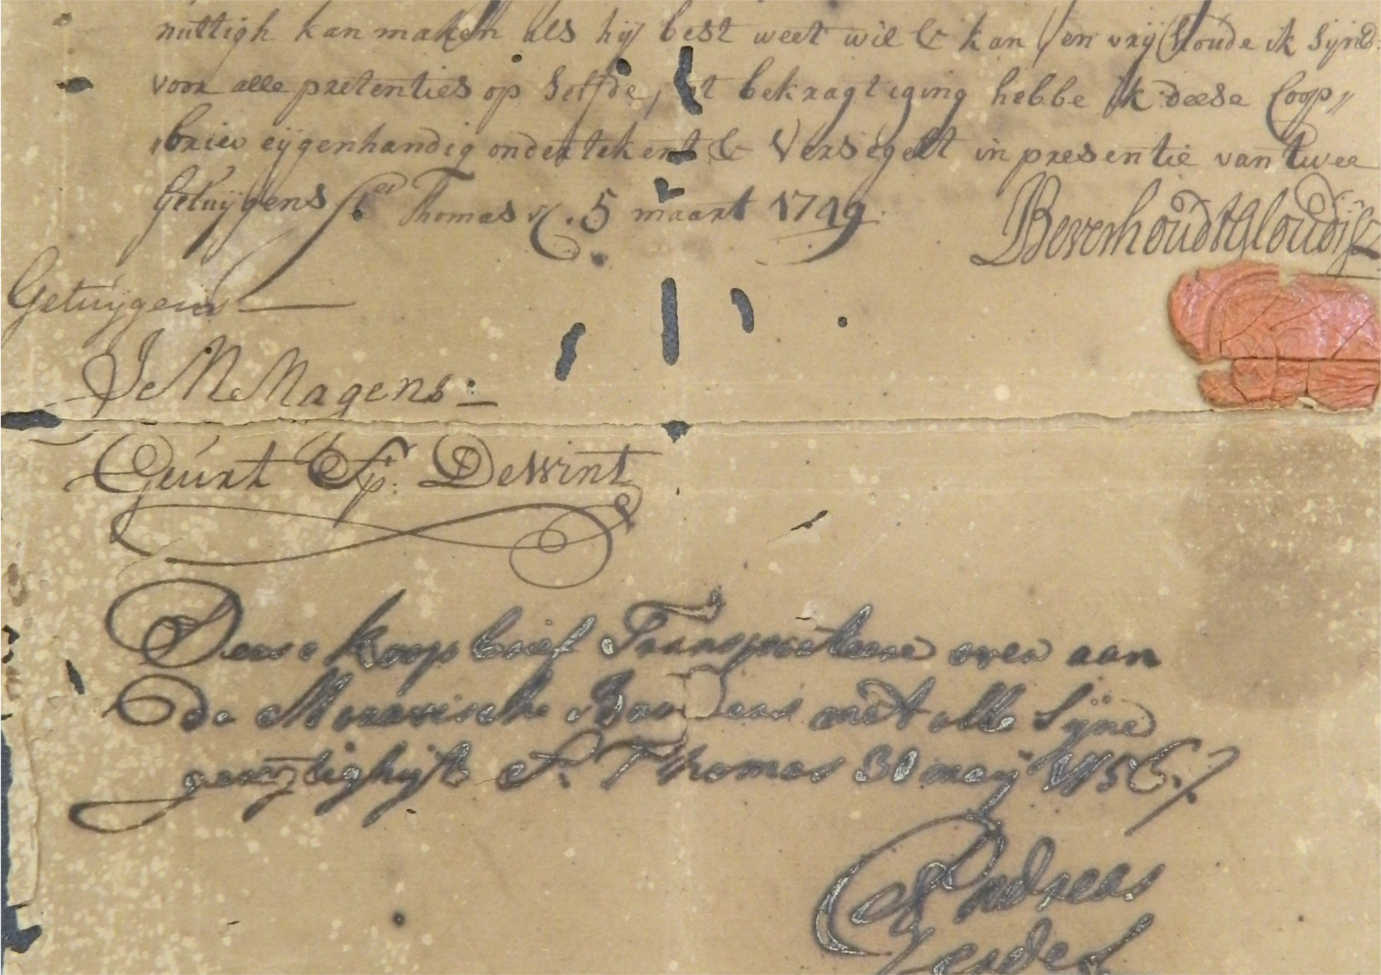 nuttigh kan maken als hij best weet wil & kan, en vrij houde ik sijnd:
voor alle pretenties op selfde, bekragtiging hebbe ik deese Coop,,
briev eijgenhandig ondertekent & Versegelt in presentie van twee
Getuijgens St. Thomas 5 maart 1749.
Beverhoudt
Getuijgens
Je M Magens
DeWint
Deese koop brief Transporteere over aan
De Moravische met alle Sijne
St. Thomas 31 meij 1756.
Andreas